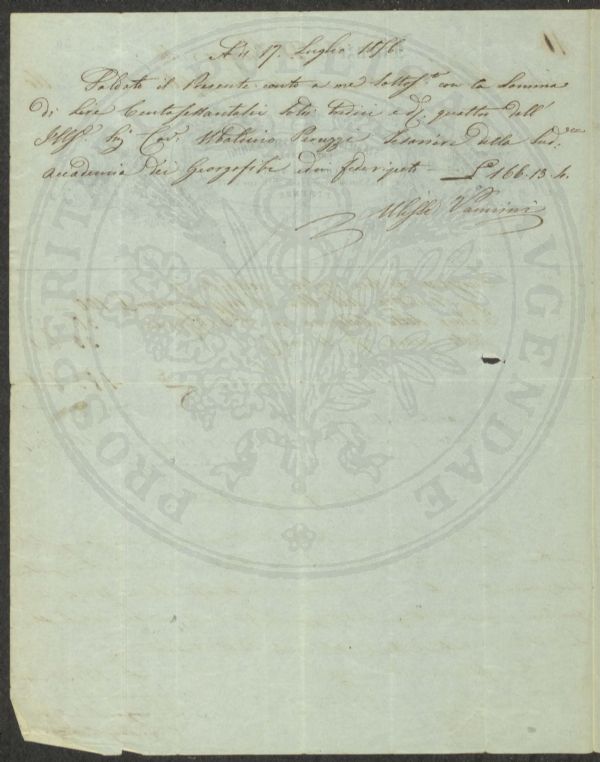 A dì 17. Luglio 1856.
Saldato il Presente conto a me Sottos.to con la Somma
di Lire Centosessantasei Soldi tredici e d. quattro dall'
Ill.mo Sig. Cav. Peruzzi Tesoriere della Sud.
Accademia dei Georgofili ed in fede ripeto £ 166.13.4.
Ulisse Vannini
PROSPERITATI AUGENDAE